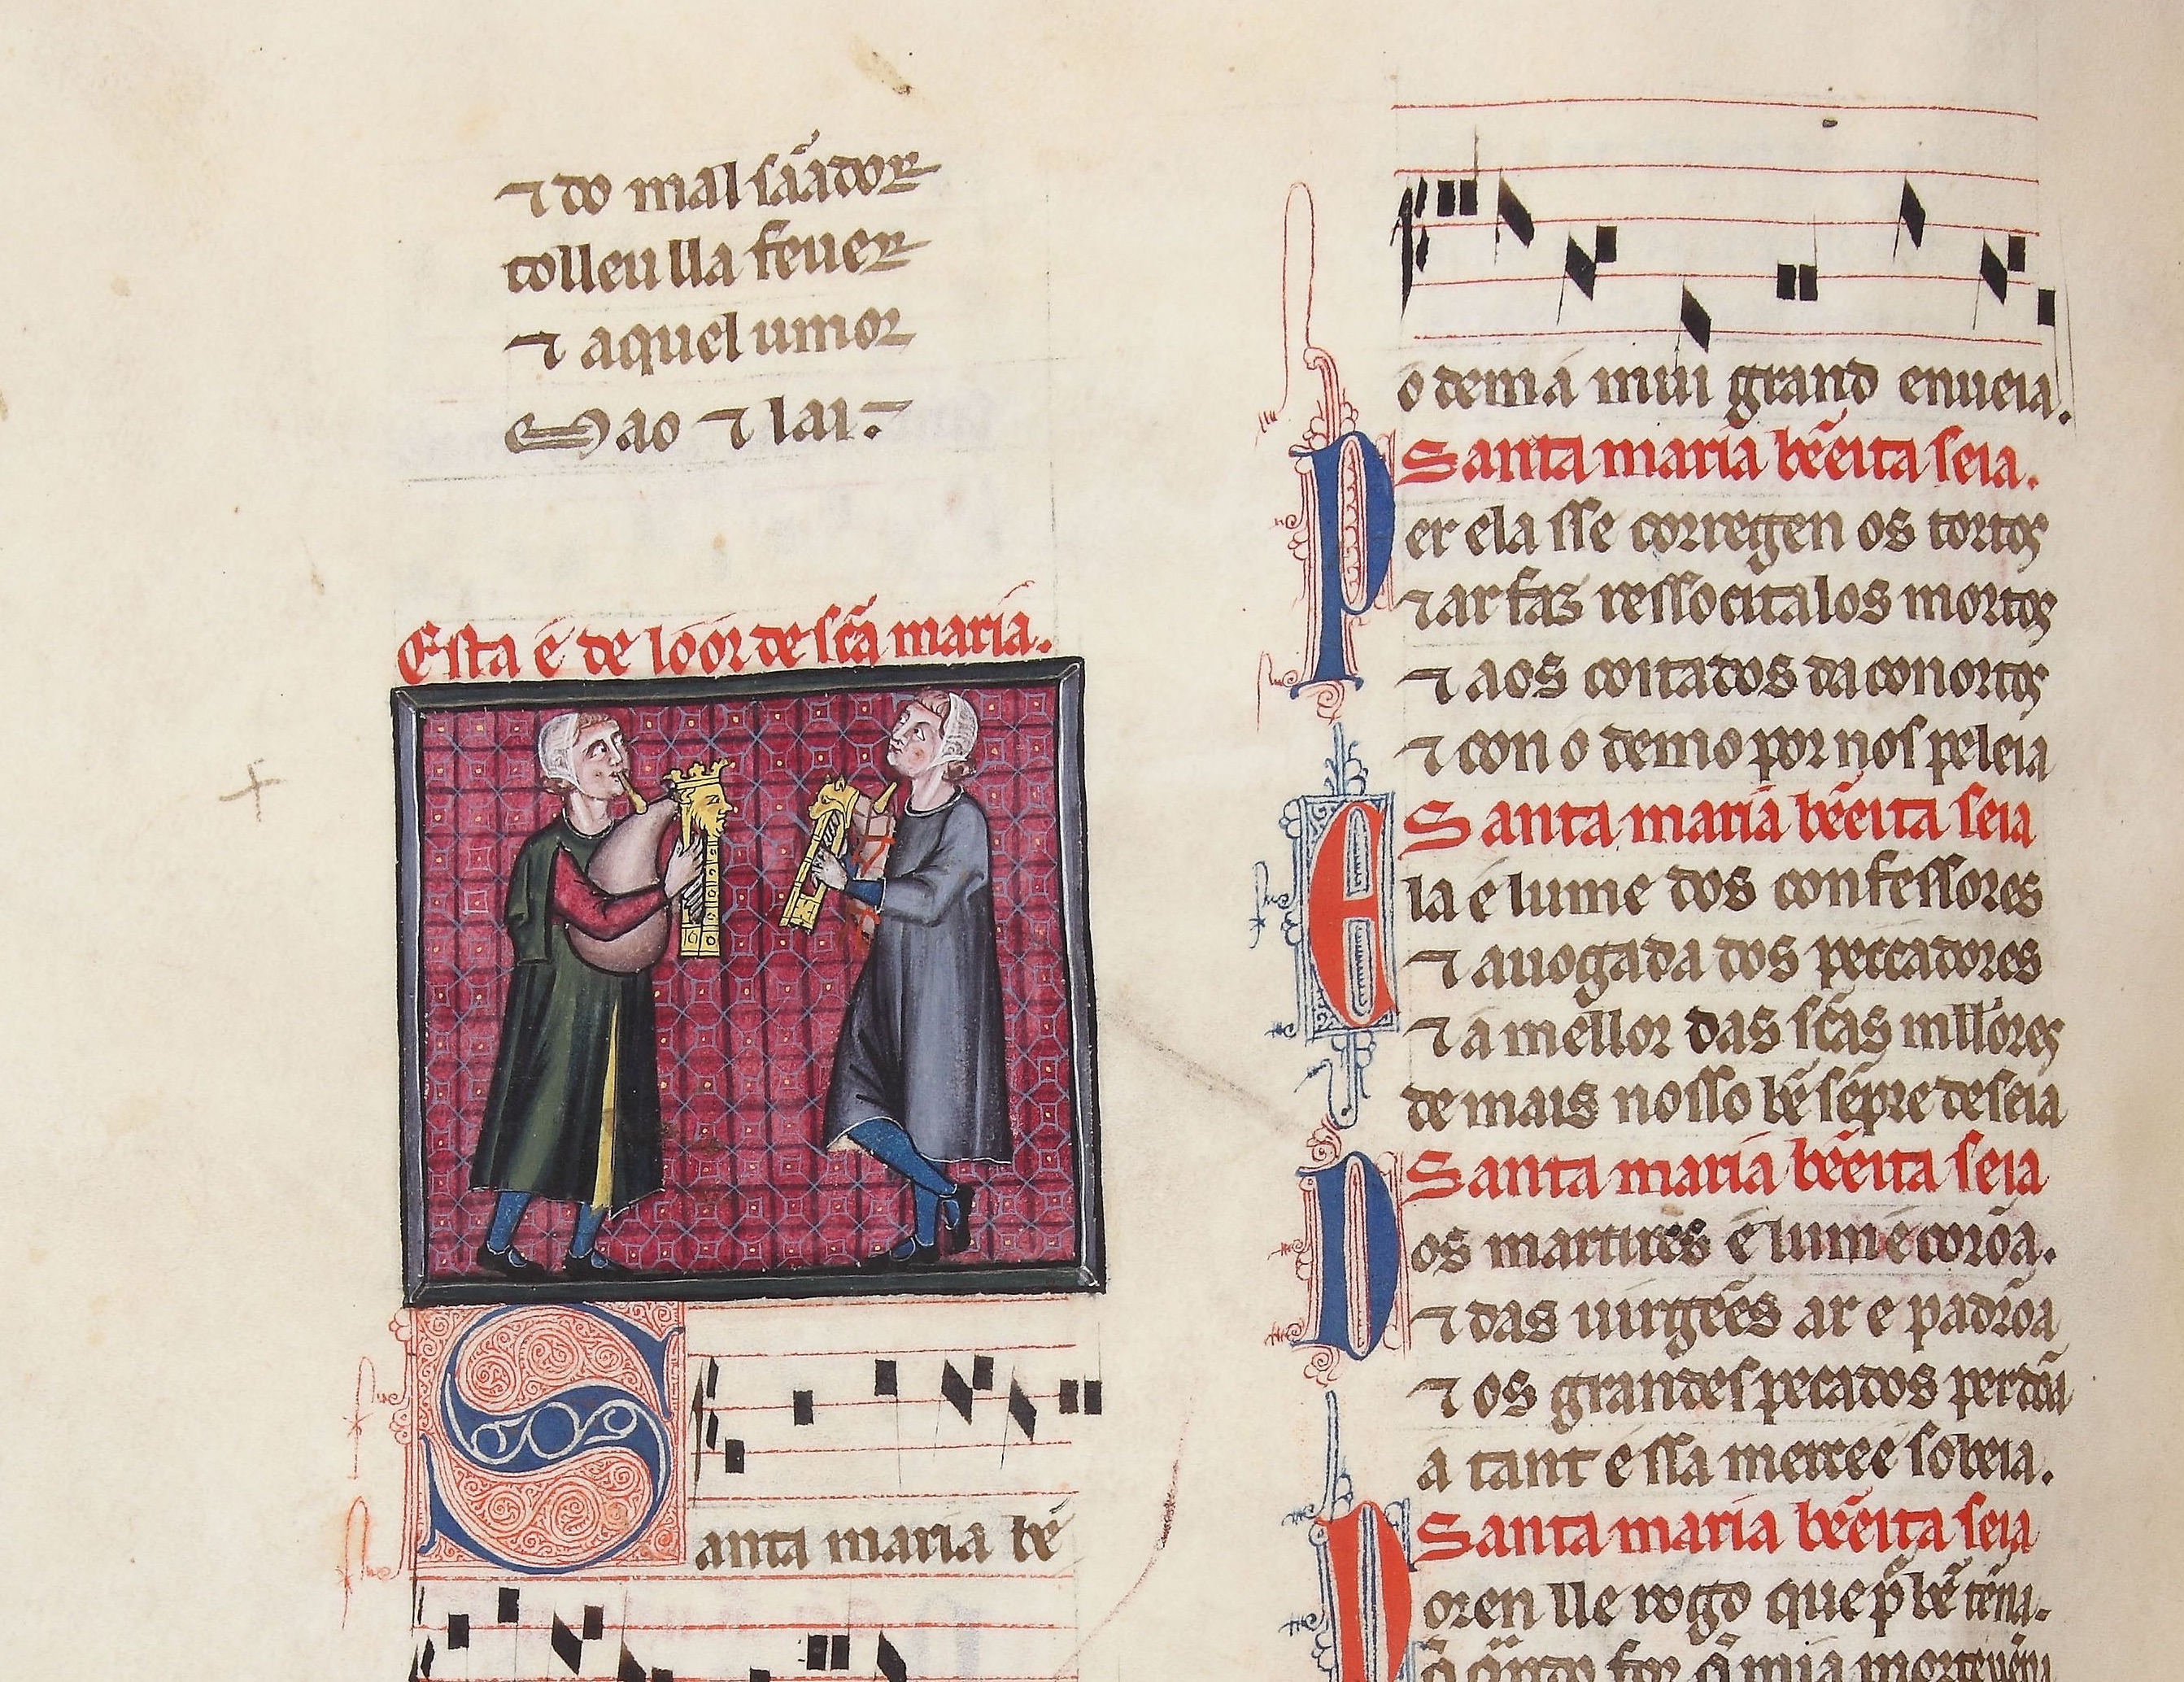 ⁊ do mal sãador
tolleu lla feuer
⁊ aquel umor
Mao ⁊ lai.
Esta é de loor de scã maria.
Santa maria bẽ
o dem á mui grand enueia.
Santa maria bẽeita seia.
Per ela sse corregen os tortos
⁊ ar faz ressocitalos mortos
⁊ aos coitados da conortos
⁊ con o demo por nos peleia
Santa maria bẽeita seia
Ela é lume dos confessores
⁊ auogada dos peccadores
⁊ a mellor das scãs mllores
de mais nosso bẽ sẽpre deseia
Santa maria bẽeita seia
Dos martires é lum e corõa.
⁊ das uirgẽes ar e padrõa
⁊ os grandes pecados perdõ
a tant é ssa mercee sobeia.
Santa maria bẽeita seia
Poren lle rogo que